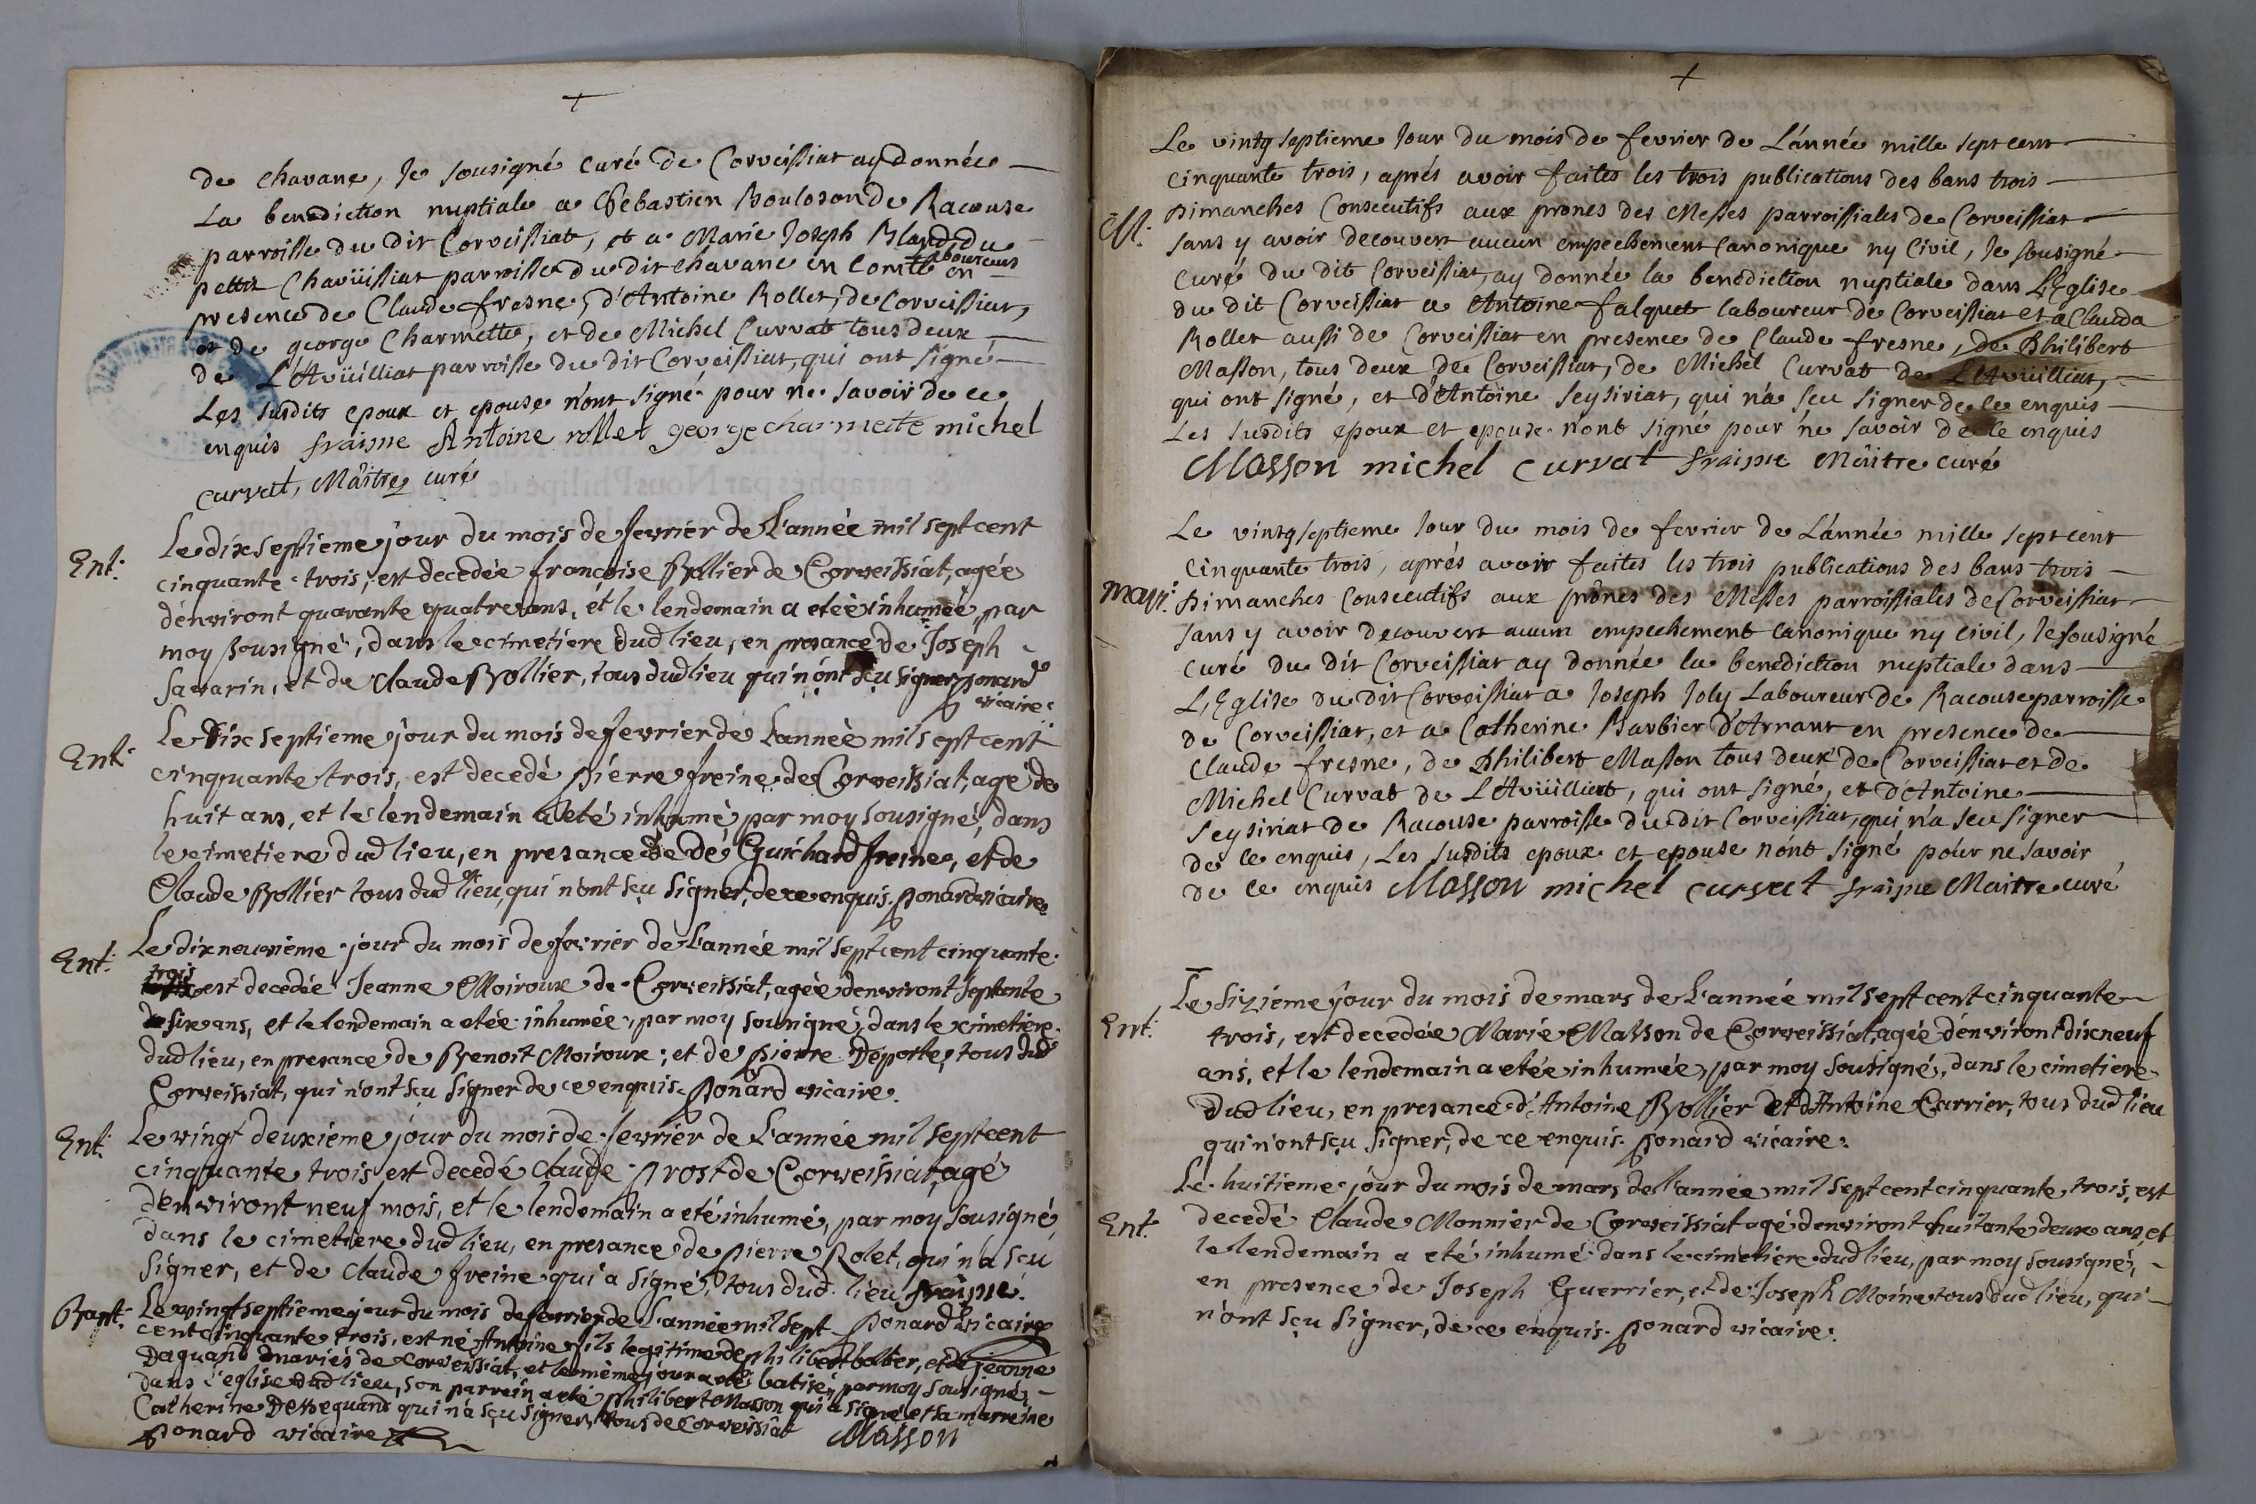 +
de chavane, Je sousigné curé de Corveissiat ay donnée
La benediction nuptiale a Sébastien Bouloson de Racouse
parroisse du dit Corveissiat, et a Marie Joseph Bland, du
petit Chavüissiat parroisse du dit chavane en Comté en
laboureurs
presence de Claude fresne, d'Antoine Rollet, de Corveissiat,
et de george Charmette, et de Michel Curvat tous deux
de L'Avüilliat parroisse du dit Corveissiat, qui ont signé
Les susdits epoux et epouse n'ont signé pour ne savoir de ce
enquis fraisne Antoine rollet george charmette michel
curvat, Mâitre curé
Ent:
Le dix septieme jour du mois de fevrier de L'année mil sept cent
cinquante trois, est decedée francoise Bollier de Corveissiat, agée
d'environt quarante quatre ans, et le lendemain a eteé inhumée, par
moy sousigné, dans le cimetiere dud lieu, en presance de Joseph
Savarin, et de Claude Bollier, tous dud lieu qui n'ont sçu signer ponard
vicaire.
Ent:
Le Dix septieme jour du mois de fevrier de L'année mil sept cent
cinquante trois, est decedé pierre freine de Corveissiat, agé de
huit ans, et le lendemain a eté inhumé par moy sousigné, dans
le cimetiere dud lieu, en presance de Guichard freine, et de
Claude Bollier tous dud lieu, qui n'ont sçu signer, de ce enquis. ponard vicaire
Ent:
Le dix neuvieme jour du mois de fevrier de L'année mil sept cent cinquante
trois est decedée Jeanne Moiroux de Corveissiat, agée denviront septante
six ans, et le lendemain a etée inhumée, par moy sousigné, dans le cimetiere
dud lieu, en presance de Benoit Moiroux, et de pierre Deporte, tous dud
Corveissiat, qui n'ont sçu signer de ce enquis. ponard vicaire.
Ent:
Le vingt deuxieme jour du mois de fevrier de L'année mil sept cent
cinquante trois est decedé Claude prost de Corveissiat, agé
d'environt neuf mois, et le lendemain a eté inhumé, par moy sousigné,
dans le cimetiere dud lieu, en presance de pierre Rolet, qui n'a sçu
signer, et de Claude freine qui a signé, tous dud. lieu fraisne.
ponard vicaire
Bapt:
Le vingt septieme jour du mois de fevrier de L'année mil sept
cent cinquante trois, est né Antoine fils legitime de philibert bolter, et de jeanne
Daquand mariés de Corveissiat, et le même jour a eté batisé, par moy sousigné,
dans l'eglise dud lieu, son parrein a eté philibert Masson qui a signé et sa marreine
Catherine Dessequand qui n'a sçu signer, tous de Corveissiat
ponard vicaire Masson
+
Le vintg septieme Jour du mois de fevrier de L'année mille sept cent
cinquante trois, aprés avoir faites les trois publications des bans trois
M:
Dimanches Consecutifs aux prones des Messes parroissiales de Corveissiat
sans y avoir decouvert aucun empechement Canonique ny Civil, Je sousigné
Curé du dit Corveissiat, ay donnée la benediction nuptiale dans L'Eglise
du dit Corveissiat a Antoine falquet laboureur de Corveissiat et a Clauda
Rollet aussi de Corveissiat en presence de Claude fresne, de Philibert
Masson, tous deux de Corveissiat, de Michel Curvat de L'Avüilliat,
qui ont signé, et d'Antoine Seysiriat, qui n'a seu signer de ce enquis
Les susdits epoux et epouse n'ont signé pour ne savoir de ce enquis
Masson michel curvat fraisne Mâitre curé
Le vintg septieme Jour du mois de fevrier de L'année mille sept cent
cinquante trois, aprés avoir faites les trois publications des bans trois
mari:
Dimanches Consecutifs aux prônes des Messes parroissiales de Corveissiat
sans y avoir decouvert aucun empechement canonique ny civil, Je sousigné
curé du dit Corveissiat ay donnée la benediction nuptiale dans
L'Eglise du dit Corveissiat a Joseph Joly Laboureur de Racouse parroisse
de Corveissiat, et a Catherine Barbier d'Arnant en presence de
Claude fresne, de Philibert Masson tous deux de Corveissiat et de
Michel Curvat de L'Avüilliat, qui ont signé, et d'Antoine
Seysiriat de Racouse parroisse du dit Corveissiat, qui n'a seu signer
de ce enquis, Les susdits epoux et epouse n'ont signé pour ne savoir
de ce enquis Masson michel curvat fraisne Maitre curé
Ent:
Le sizieme jour du mois de mars de L'année mil sept cent cinquante
trois, est decedée Marie Masson de Corveissiat, agée d'environt dix neuf
ans, et le lendemain a etée inhumée, par moy sousigné, dans le cimetiere
dud lieu, en presance d'Antoine Bollier et d'Antoine Carrier, tous dud lieu
qui n'ont sçu signer, de ce enquis. ponard vicaire.
Ent:
Le huitieme jour du mois de mars de l'année mil sept cent cinquante trois, est
decedé Claude Monnier de Corveissiat agé denviront huitante deux ans, et
le lendemain a eté inhumé dans le cimetiere dud lieu, par moy sousigné,
en presence de Joseph Guerrier, et de Joseph Moine tous dud lieu, qui
n'ont sçu signer, de ce enquis. ponard vicaire.